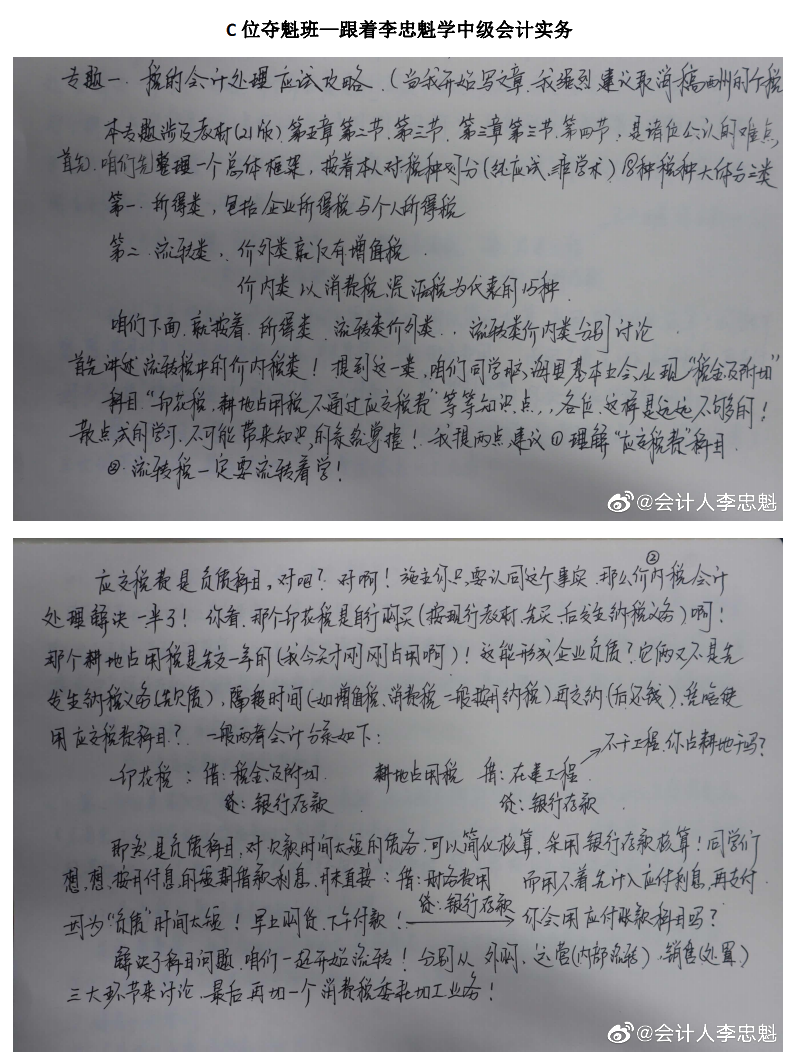 C位夺魁班—跟着李忠魁学中级会计实务
专题一. 税的会计处理应试攻略.(当我开始写文章.我强烈建议取消稿酬的个税
本专题涉及教材(21版).第五章第二节.第三节.第三章第三节.第四节,是诸位公认的难点
首先.咱们先整理一个总体框架,按着本人对税种划分(纯应试.非学术)18种税种大体分三类
第一.所得类,包括企业所得税与个人所得税
第二.流转类,价外类就仅有增值税.
价内类以消费税、资源税为代表的15种.
咱们下面.就按着.所得类.流转类价外类..流转类价内类分别讨论
首先讲述流转税中的价内税类!提到这一类,咱们同学脑海里基本上会出现"税金及附加"
科目."印花税,耕地占用税不通过应交税费"等等知识点,,各位.这样是远远不够的!
散点式的学习.不可能带来知识的系统掌握!我提两点建议①理解"应交税费"科目.
②.流转税一定要流转着学!
@会计人李忠魁
应交税费是负债科目,对吧?对啊!施主你只要认同这个事实.那么价②内税会计
处理解决一半了!你看.那个印花税是自行购买(按现行教材.先买.后发生纳税义务)啊!
那个耕地占用税是先交一年的(我今天才刚刚占用啊)!这能形成企业负债?它俩又不是先
发生纳税义务(先欠债),隔段时间(如增值税、消费税一般按月纳税)再交纳(后还钱).凭啥使
用应交税费科目?.一般两者会计分录如下:
不干工程.你占耕地干吗?
印花税:借:税金及附加 耕地占用税 借:在建工程
贷:银行存款 贷:银行存款
即然是负债科目.对欠款时间太短的债务.可以简化核算.采用银行存款核算!同学们
想,想.按月付息的短期借款利息.月末直接:借:财务费用 而用不着先计入应付利息,再支付.
贷:银行存款
因为"负债"时间太短!早上购货.下午付款! 你会用应付账款科目吗?
解决了科目问题.咱们一起开始流转!分别从外购,运营(内部流转),销售(处置)
三大环节来讨论.最后再加一个消费税委托加工业务!
@会计人李忠魁